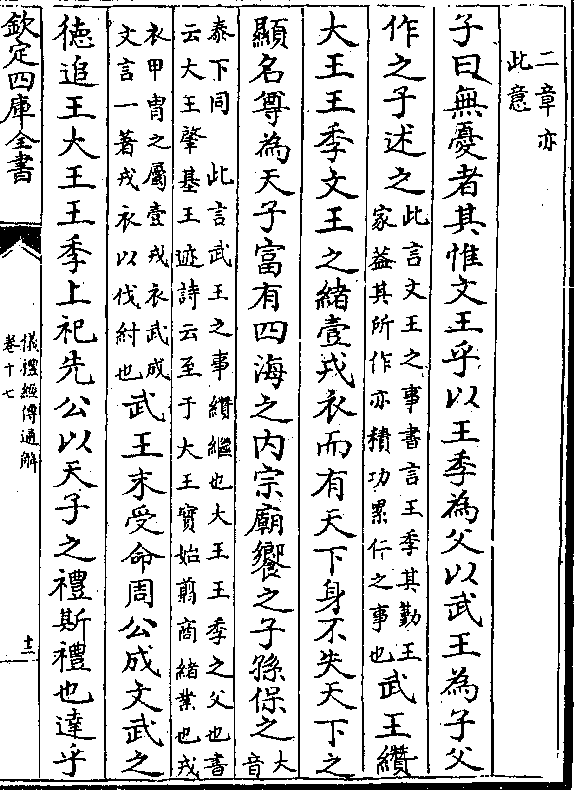 二章亦
此意
子曰無憂者其惟文王乎以王季為父以武王為子父
作之子述之
此言文王之事書言王季其勤王
家葢其所作亦積功累仁之事也
武王纘
大王王季文王之緒壹戎衣而有天下身不失天下之
顯名尊為天子富有四海之内宗廟饗之子孫保之
大
音
泰下同　此言武王之事纘繼也大王王季之父也書
云大王肇基王迹詩云至于大王實始翦商緒業也戎
衣甲胄之屬壹戎衣武成
文言一著戎衣以伐紂也
武王末受命周公成文武之
徳追王大王王季上祀先公以天子之禮斯禮也達乎
欽定四庫全書
儀禮經傳通解
卷十七
十三